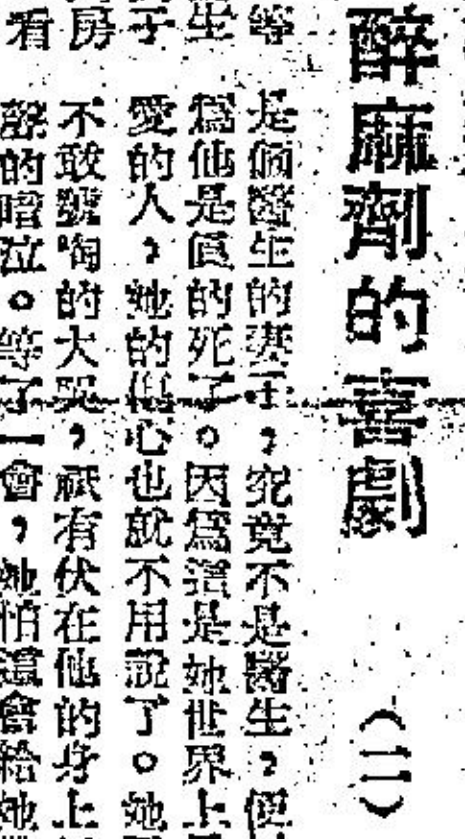 醉麻劑的喜劇 (二)
等 是個醫生的妻子,究竟不是醫生,便
生 爲他是眞的死了。因爲這是她世界上
子 愛的人,她的傷心也就不用說了。她
房 不敢號啕的大哭,祇有伏在他的身上
看 靜的暗泣。等了一會,她怕這會給她